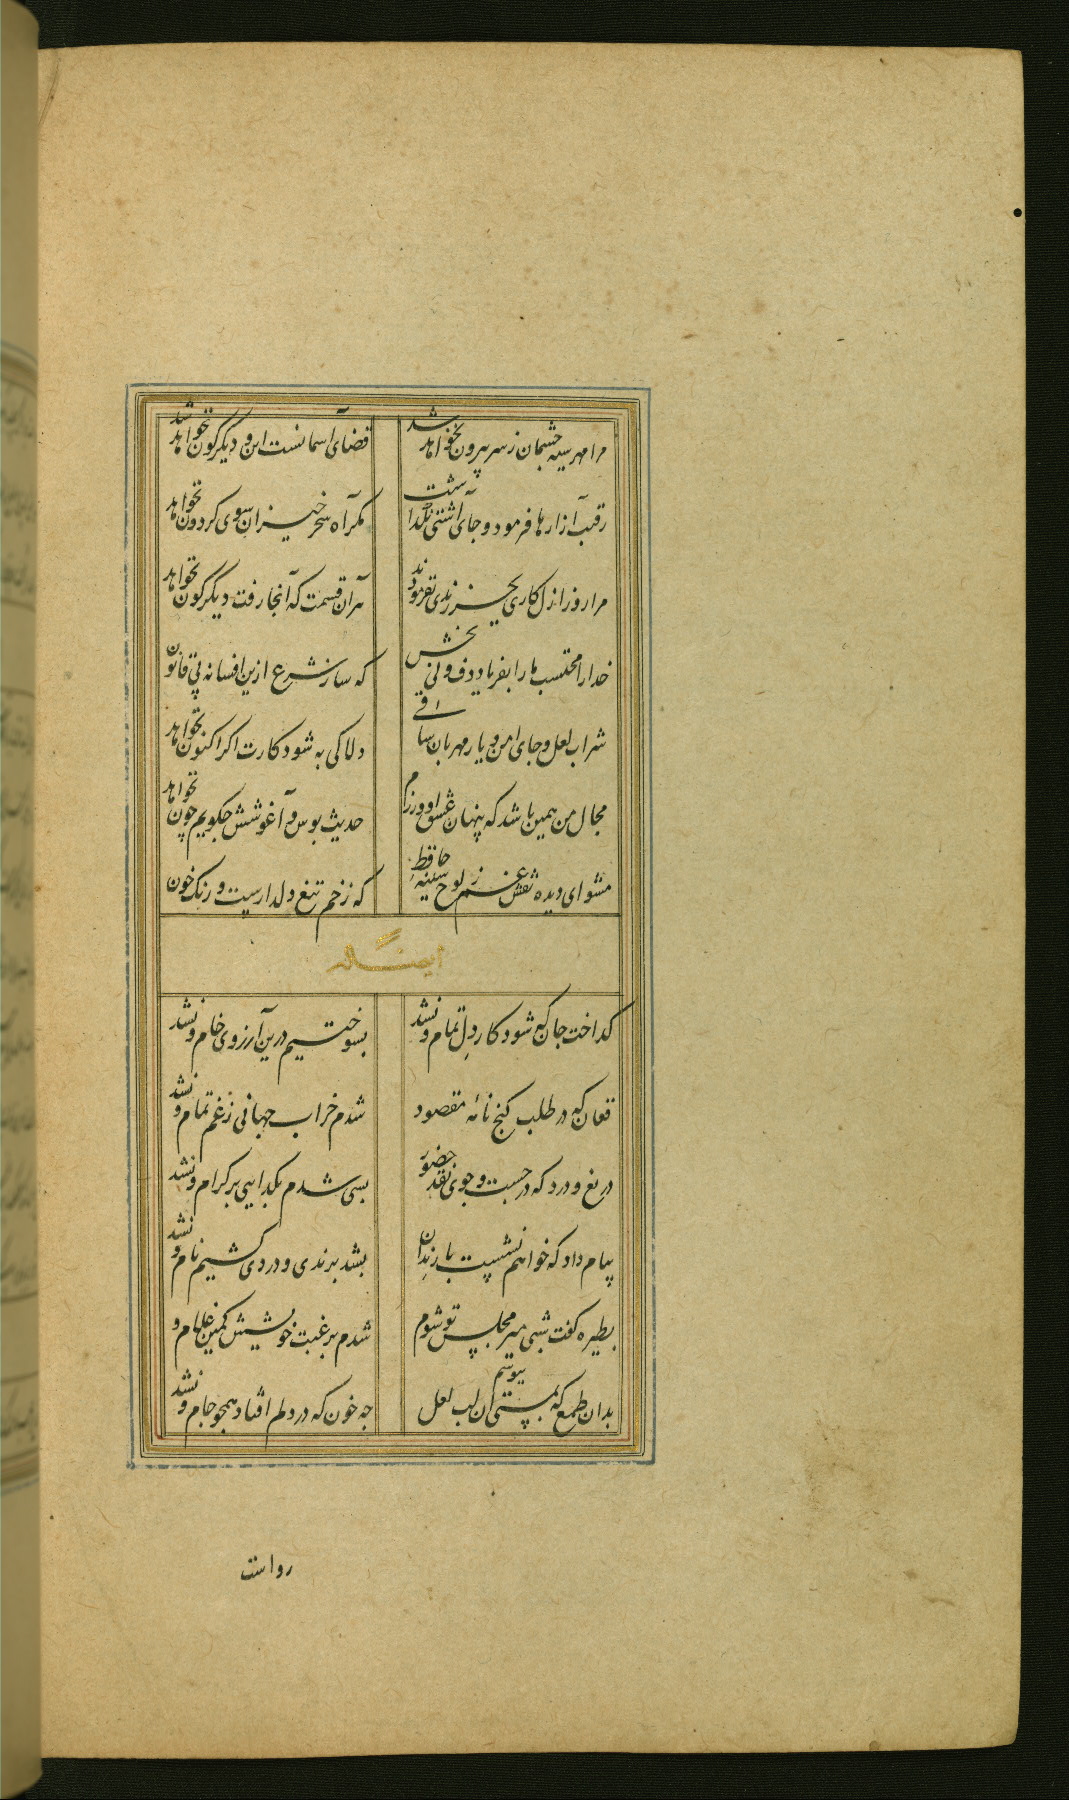 مرا مهر سیه چشمان ز سر بیرون نخواهد شد
قضای آسمانست این و دیکرکون نخواهد شد
رقیب آزارها فرمود و جای آشتی نکذاشت
مکر آه سحر خیزان سوی کردون نخواهد
مرا روز ازل کاری بجز رندی نفرمودند
هر آن قسمت که آنجا رفت دیکرکون نخواهد
خدا را محتسب ما را بفریاد دف و نی بخش
که ساز شرع ازین افسانه بی قانون
شراب لعل و جای امن و یار مهربان ساقی
دلا کی به شود کارت اکر اکنون نخواهد
مجال من همین باشد که پنهان عشق او ورزم
حدیث بوس و آغوشش جکویم چون نخواهد
مشو ای دیده نقش غم ز لوح سینه حافظ
که زخم تیغ دلدارست و رنک خون
ایضاً له
کداخت جان که شود کار دل تمام و نشد
بسوختیم درین آرزوی خام و نشد
فغان که در طلب کنج نامه مقصود
شدم خراب جهانی ز غم تمام و نشد
دریغ و درد که در جست و جوی نقد حضور
بسی شدم بکدایی بر کرام و نشد
پیام داد که خواهم نشست با رندان
بشد برندی و دردی کشیم نام و نشد
بطیره کفت شبی میر مجلس تو شوم
شدم برغبت خویشش کمین غلام و
بدان طمع که ببوسم بمستی آن لب لعل
جه خون که در دلم افتاد همچو جام و نشد
رواست